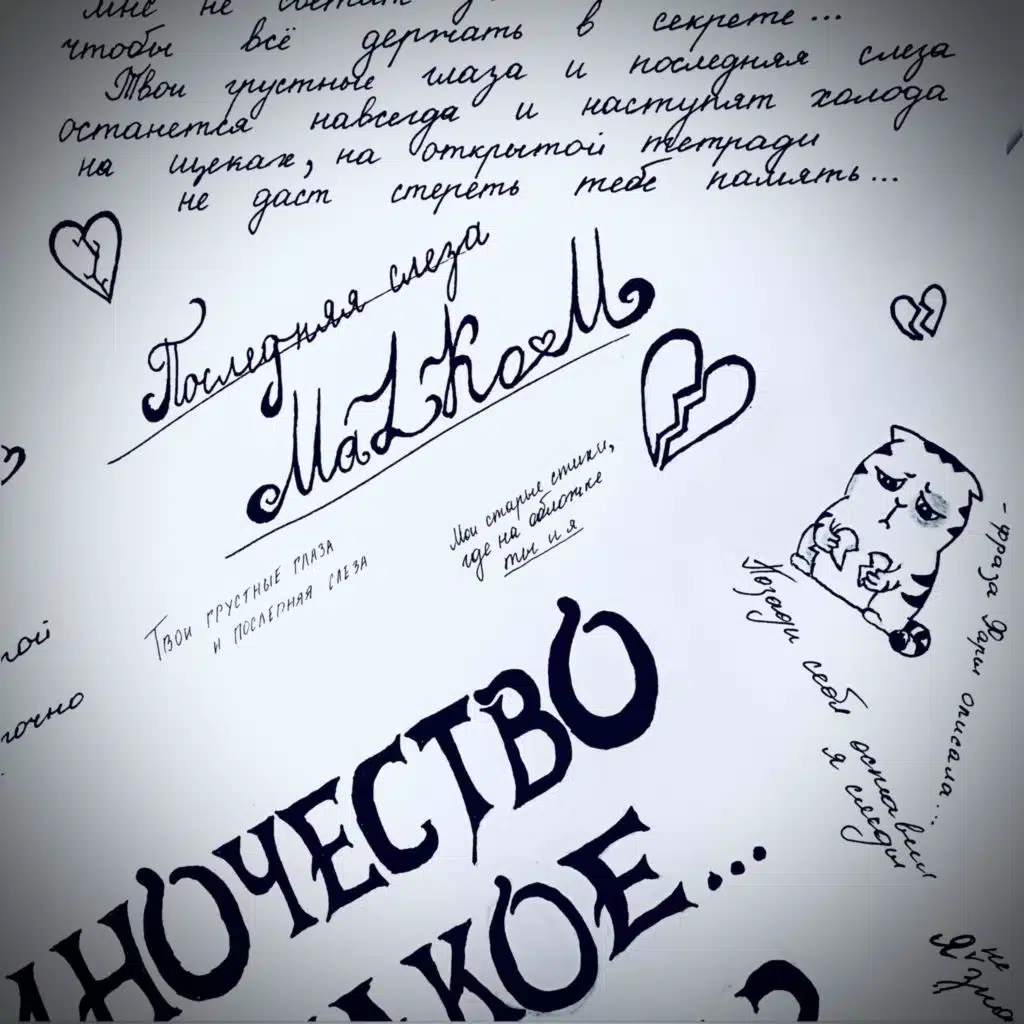 мне не
чтобы всё держать в секрете...
Твои грустные глаза и последняя слеза
останется навсегда и наступят холода
на щеках, на открытой тетради
не даст стереть тебе память...
Последняя слеза
MaLKoM
Твои грустные глаза
и последняя слеза
Мои старые стихи,
где на обложке
ты и я
- фраза
описала...
Позади себя оставил
я следы
ой
точно
НОЧЕСТВО
КОЕ...
Я не